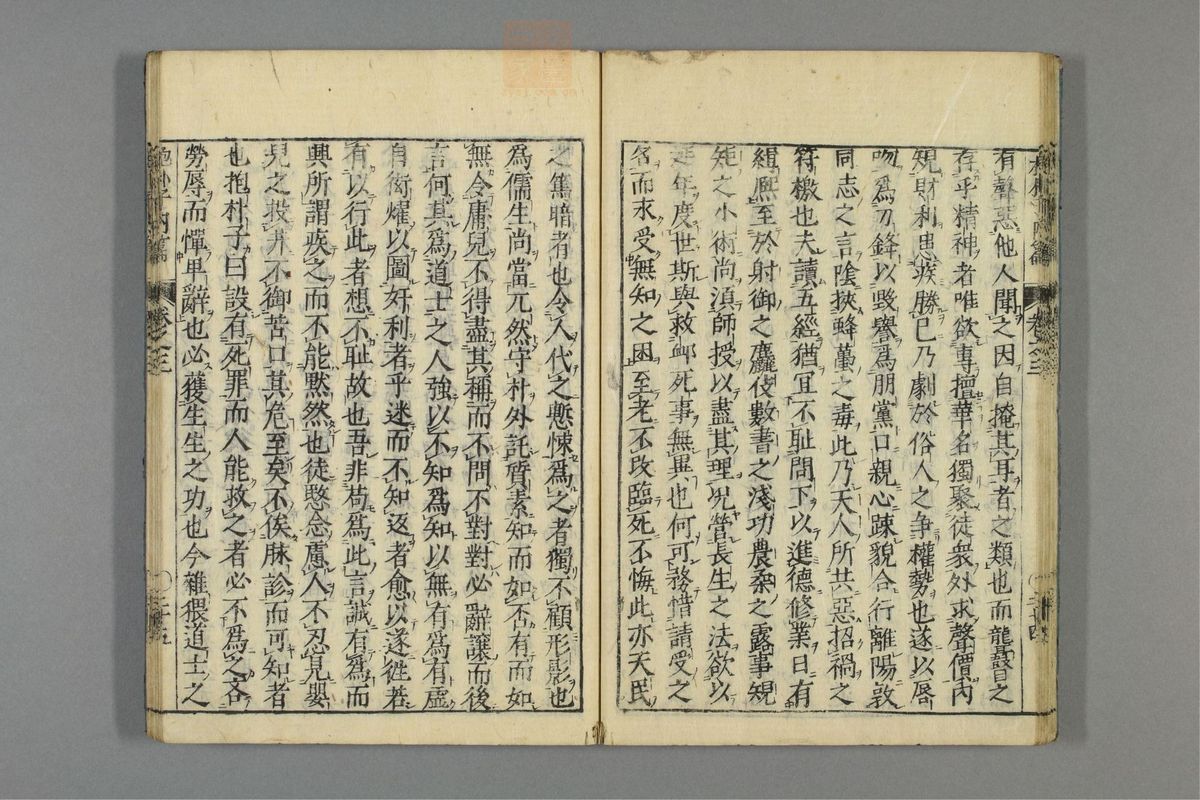 有聲惡他人聞之因自掩其耳者之類也而聾瞽之
存乎精神者唯欲專擅華名獨聚徒衆外求聲價內
規財利患疾勝己乃劇於俗人之爭權勢也遂以唇
吻爲刃鋒以毀譽爲朋黨口親心踈貌合行離陽敦
同志之言隂挾蜂蠆之毒此乃天人所共惡招禍之
符檄也夫讀五經猶冝不耻問下以進德修業日有
緝熈至於射御之麤伎數書之淺功農桒之露事規
矩之小術尚湏師授以盡其理况營長生之法欲以
延年度世斯與救䘏死事無異也何可務惜請受之
名而永受無知之困至老不改臨死不悔此亦天民
之篤暗者也令人代之慙悚爲之者獨不顧形影也
為儒生尚當兀然守朴外託質素知而如否有而如
無令庸兒不得盡其稱而不問不對對必辭讓而後
言何其爲道士之人強以不知爲知以無有爲有虛
自衒燿以圖奸利者乎迷而不知返者愈以遂徃若
有以行此者想不耻故也吾非苟爲此言誠有爲而
興所謂疾之而不能默然也徒愍念愚人不忍見嬰
兒之投井不御苦口其危至矣不俟脉診而可知者
也抱朴子曰設有死罪而人能救之者必不爲之吝
勞辱而憚卑辭也必獲生生之功也今雜猥道士之
卷之三
卷之三
二十五